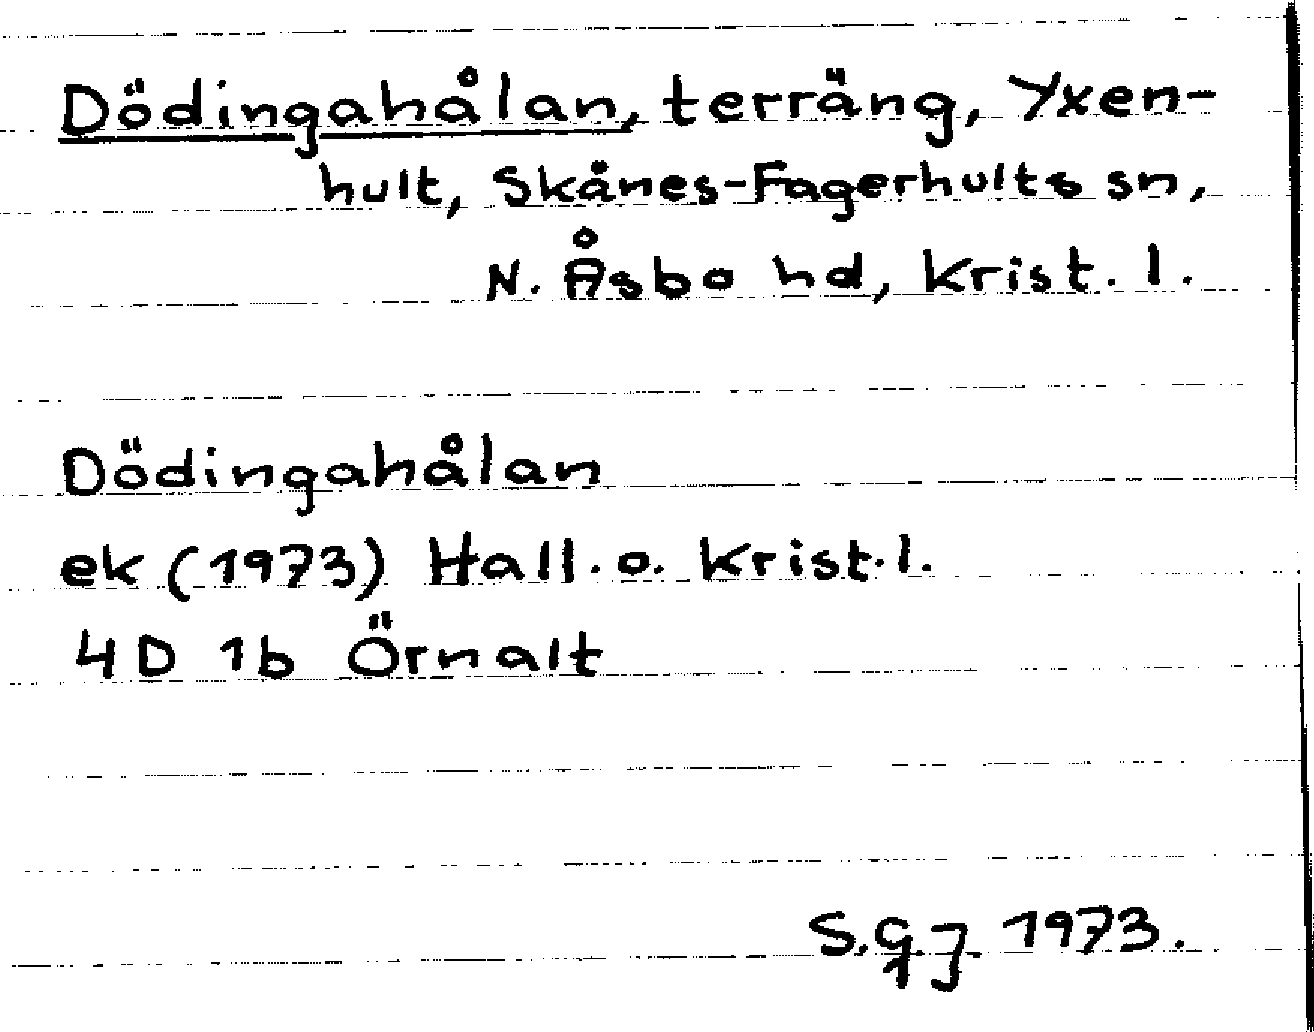 Dödingahålan, terräng, Yxen-
hult, Skånes-Fagerhults sn,
N. Åsbo hd, Krist. l.
Dödingahålan
ek (1973) Hall. o. Krist. l.
4D 1b Örnalt
S.G.J. 1973.